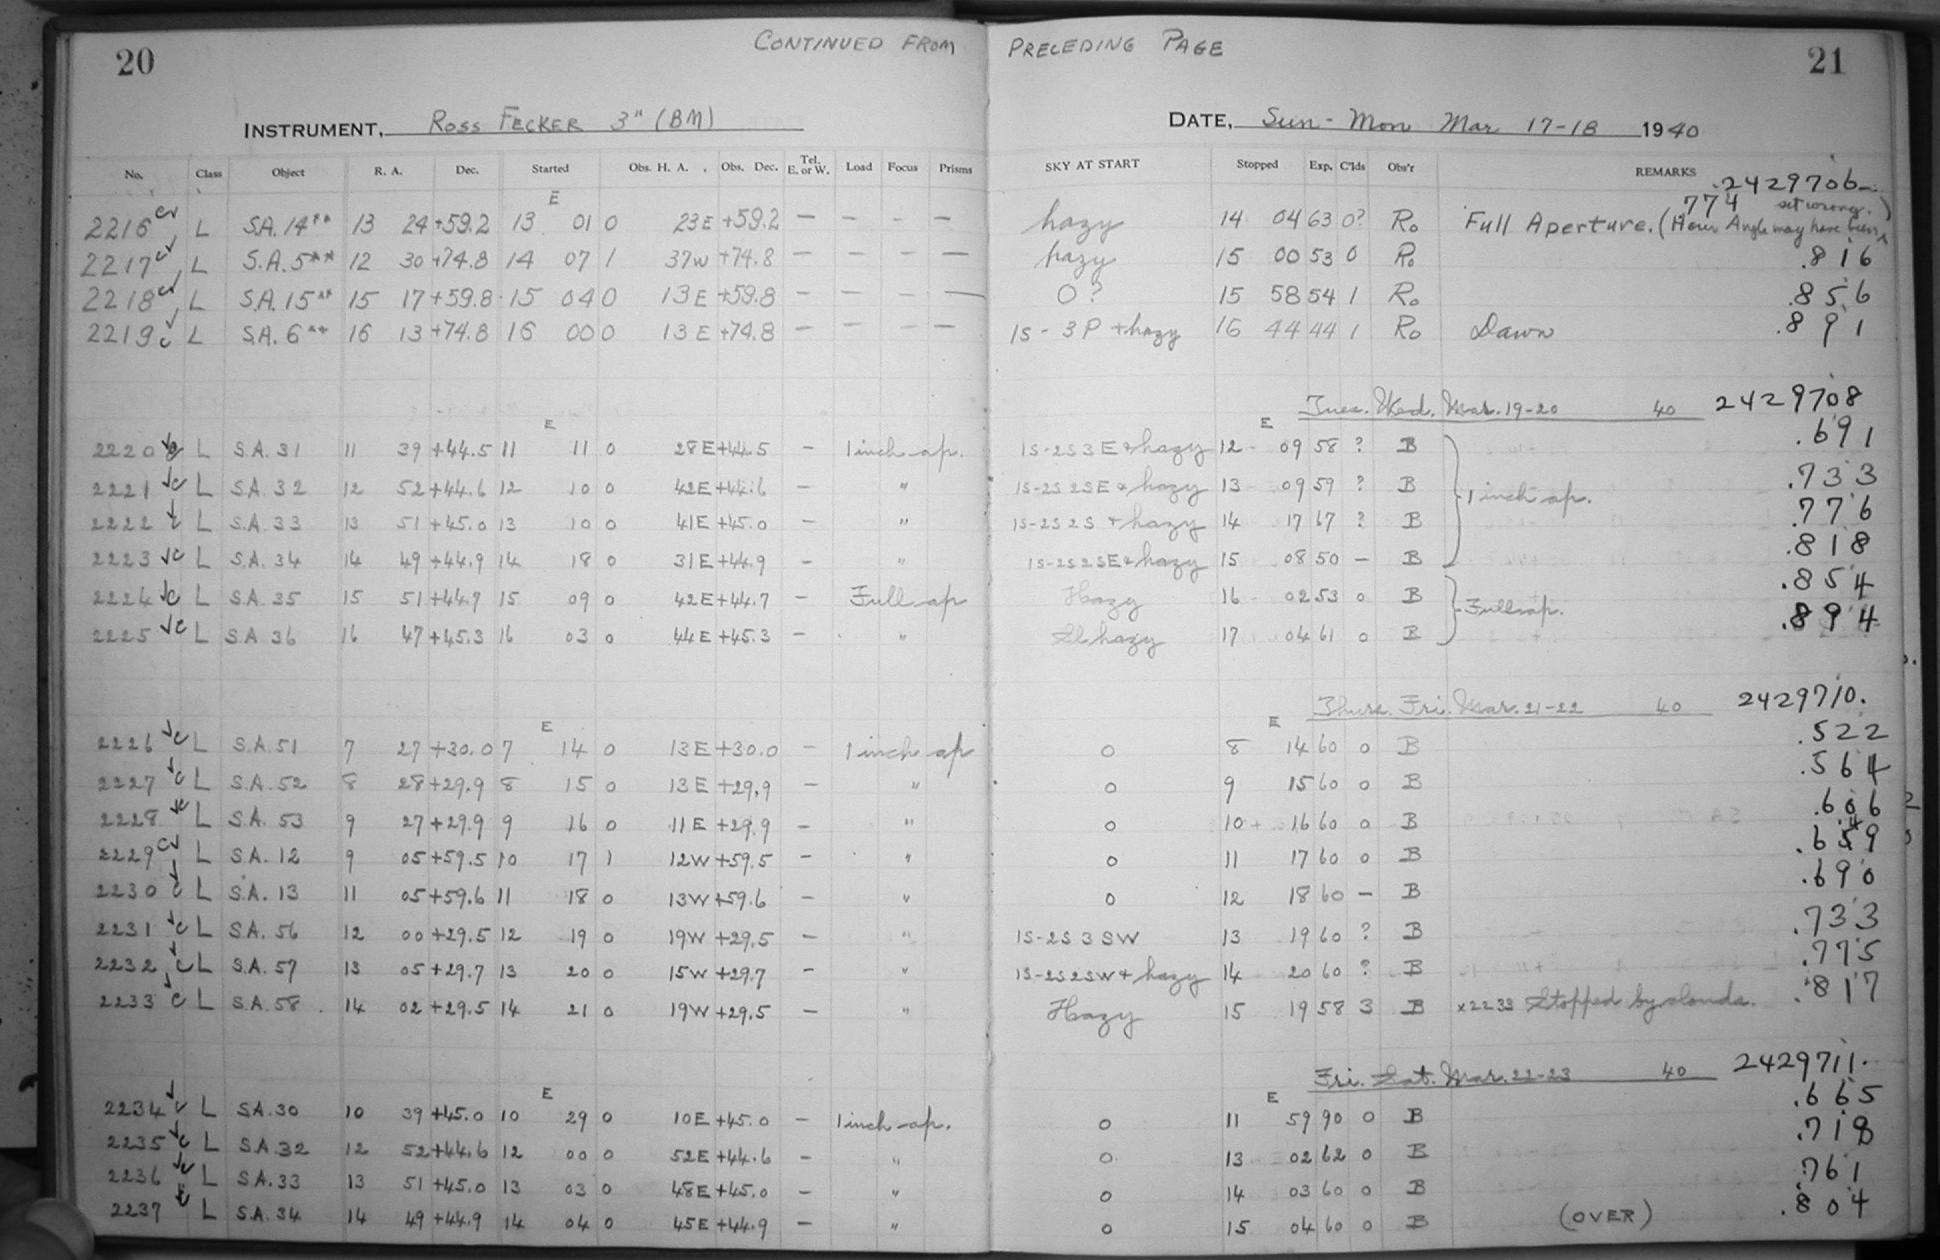 20 CONTINUED FROM PRECEDING PAGE 21
INSTRUMENT, ROSS FECKER 3" (BM) DATE, Sun - Mon Mar 17-18 1940
No. Class Object R. A. Dec. Started Obs. H. A. Obs. Dec. Tel. E. or W. Load Focus Prisms SKY AT START Stopped Exp. C'lds Obs'r REMARKS 2429706
E
2216 L S.A. 14** 13 24 +59.2 13 01 0 23E +59.2 — — — — hazy 14 04 63 0? Ro Full Aperture. (Hour Angle may have been set wrong.) 774
2217 L S.A. 5** 12 30 +74.8 14 07 1 37W +74.8 — — — — hazy 15 00 53 0 Ro .816
2218 L S.A. 15** 15 17 +59.8 15 04 0 13E +59.8 — — — — 0? 15 58 54 1 Ro .856
2219 L S.A. 6** 16 13 +74.8 16 00 0 13E +74.8 — — — — 1S - 3P + hazy 16 44 44 1 Ro Dawn .891
Tues. Wed. Mar. 19-20 40 2429708
E E
2220 L S.A. 31 11 39 +44.5 11 11 0 28E +44.5 — 1 inch ap. 1S-2S 3E & hazy 12 09 58 ? B .691
2221 L S.A. 32 12 52 +44.6 12 10 0 42E +44.6 — " 1S-2S 2SE & hazy 13 09 59 ? B 1 inch ap. .733
2222 L S.A. 33 13 51 +45.0 13 10 0 41E +45.0 — " 1S-2S 2S + hazy 14 17 67 ? B .776
2223 L S.A. 34 14 49 +44.9 14 18 0 31E +44.9 — " 1S-2S 2SE & hazy 15 08 50 — B .818
2224 L S.A. 35 15 51 +44.7 15 09 0 42E +44.7 — Full ap Hazy 16 02 53 0 B Full ap. .854
2225 L S.A. 36 16 47 +45.3 16 03 0 44E +45.3 — " Sl hazy 17 04 61 0 B .894
Thurs. Fri. Mar. 21-22 40 2429710.
E E
2226 L S.A. 51 7 27 +30.0 7 14 0 13E +30.0 — 1 inch ap 0 8 14 60 0 B .522
2227 L S.A. 52 8 28 +29.9 8 15 0 13E +29.9 — " 0 9 15 60 0 B .564
2228 L S.A. 53 9 27 +29.9 9 16 0 11E +29.9 — " 0 10 16 60 0 B .606
2229 L S.A. 12 9 05 +59.5 10 17 1 12W +59.5 — " 0 11 17 60 0 B
2230 L S.A. 13 11 05 +59.6 11 18 0 13W +59.6 — " 0 12 18 60 — B .690
2231 L S.A. 56 12 00 +29.5 12 19 0 19W +29.5 — " 1S-2S 3 SW 13 19 60 ? B .733
2232 L S.A. 57 13 05 +29.7 13 20 0 15W +29.7 — " 1S-2S 2SW + hazy 14 20 60 ? B .775
2233 L S.A. 58 14 02 +29.5 14 21 0 19W +29.5 — " Hazy 15 19 58 3 B x2233 Stopped by clouds. .817
Fri. Sat. Mar. 22-23 40 2429711.
E E
2234 L S.A. 30 10 39 +45.0 10 29 0 10E +45.0 — 1 inch ap. 0 11 59 90 0 B .665
2235 L S.A. 32 12 52 +44.6 12 00 0 52E +44.6 — " 0 13 02 62 0 B .718
2236 L S.A. 33 13 51 +45.0 13 03 0 48E +45.0 — " 0 14 03 60 0 B .761
2237 L S.A. 34 14 49 +44.9 14 04 0 45E +44.9 — " 0 15 04 60 0 B (OVER) .804